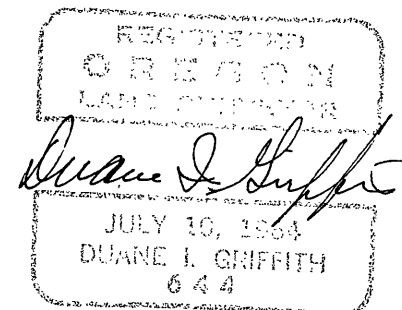 REGISTERED
OREGON
LAND SURVEYOR
Duane I. Griffith
JULY 10, 1964
DUANE I. GRIFFITH
644